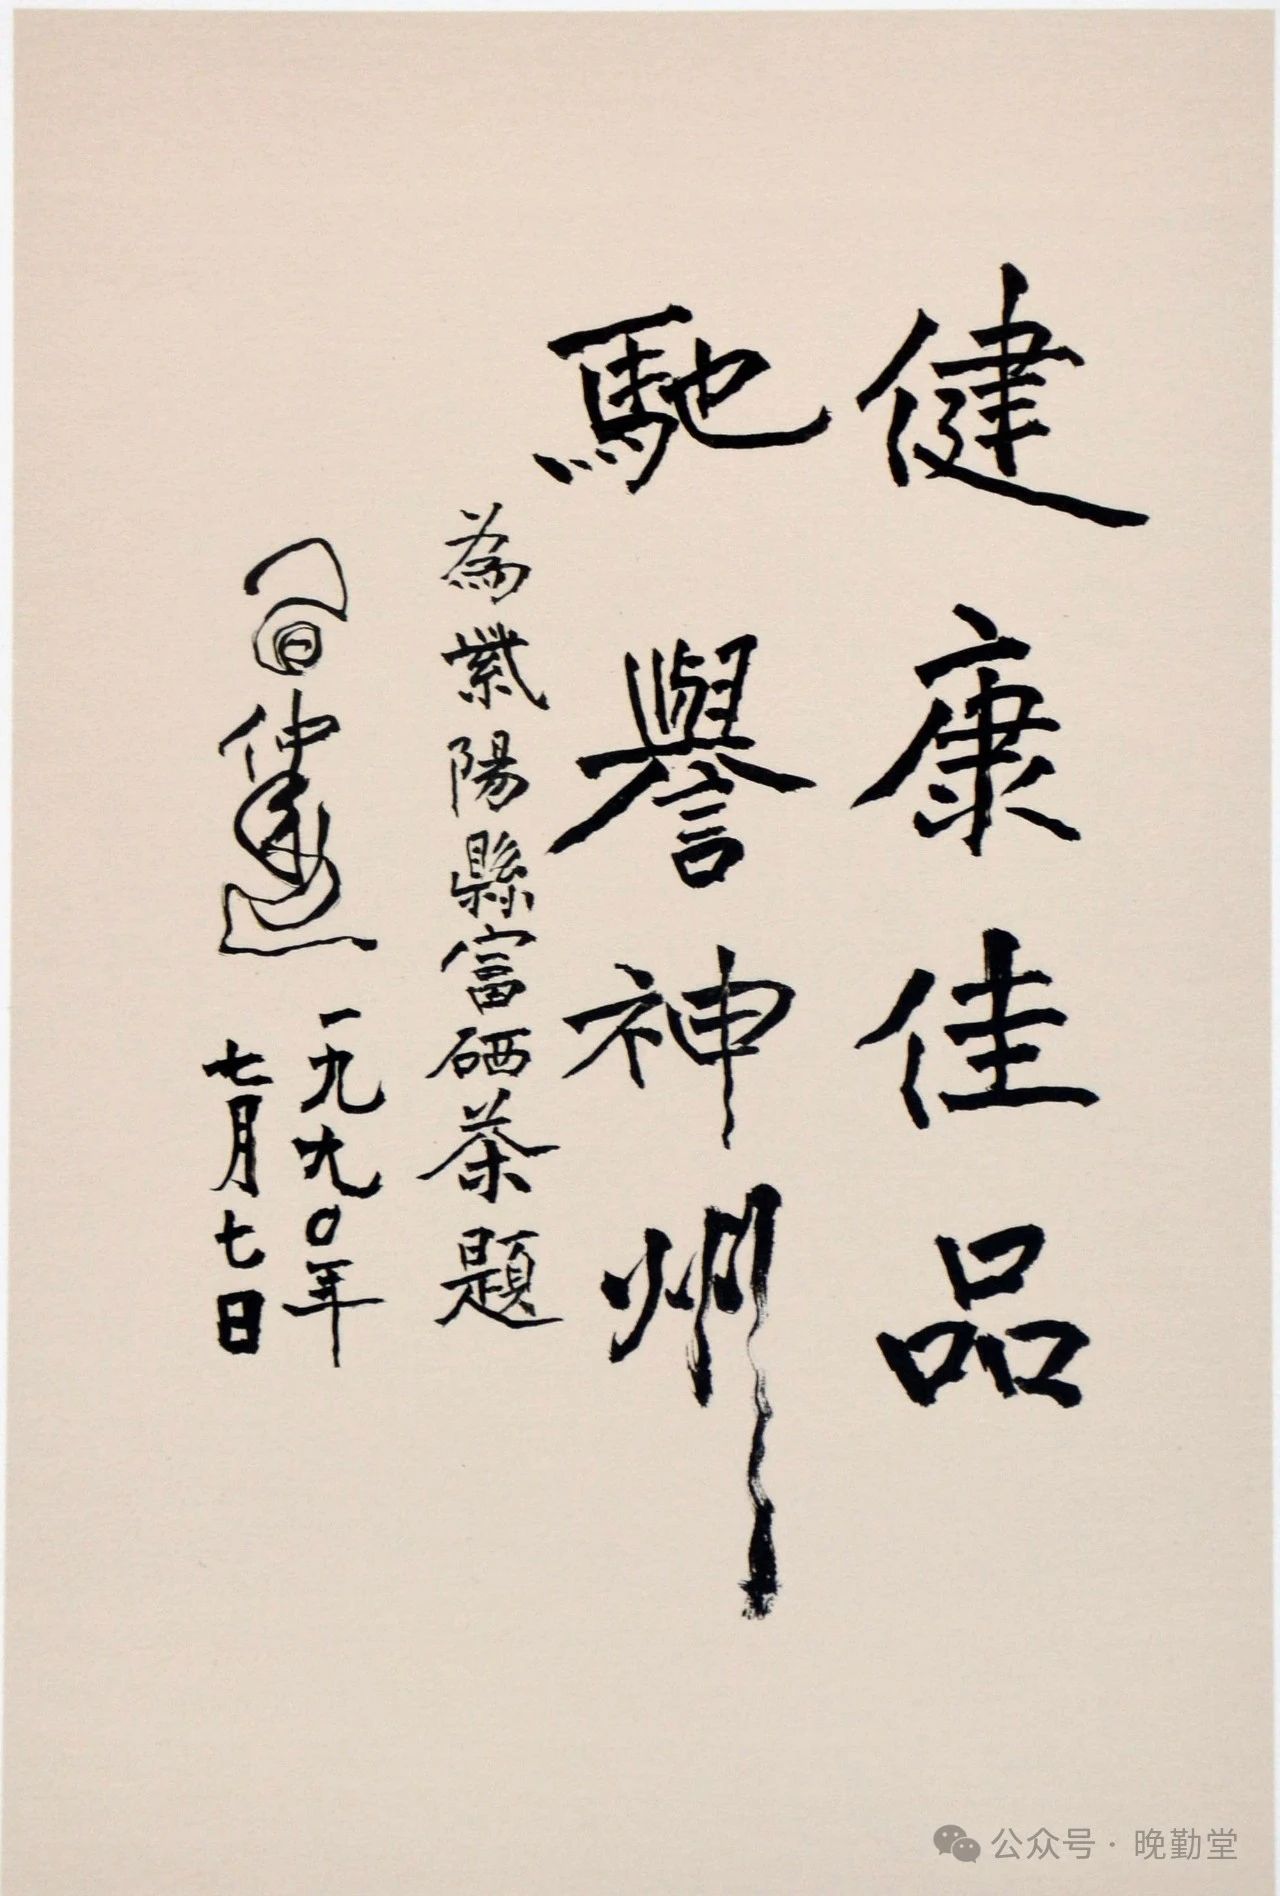 健康佳品
馳譽神州
為紫陽縣富硒茶題
習仲勳
一九九〇年
七月七日
公众号 · 晚勤堂